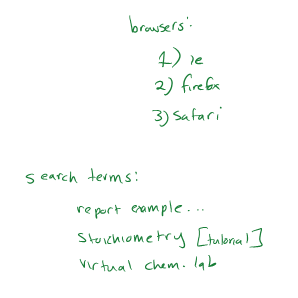 browsers:
1) ie
2) firefox
3) safari
search terms:
report example...
Stoichiometry [tutorial]
virtual chem. lab